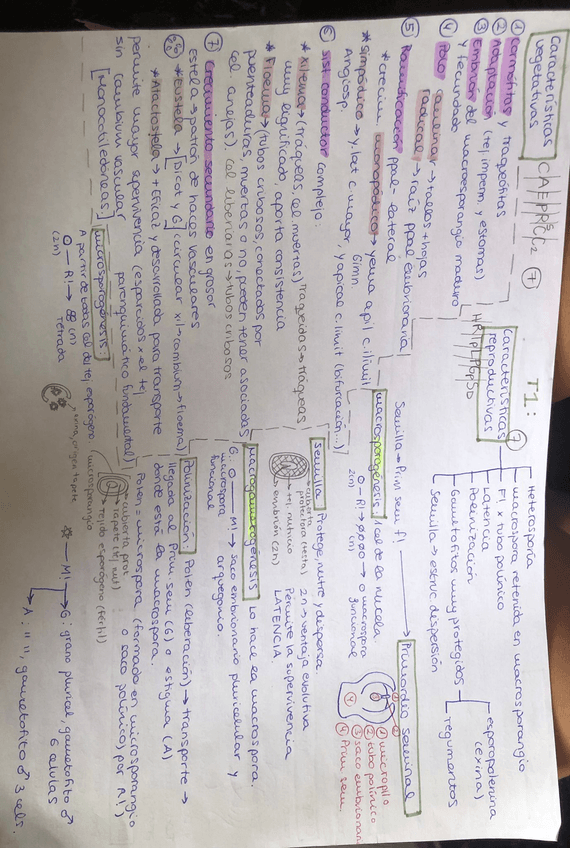 T1:
Características vegetativas
CAEPRSC/2 (7)
① Cormófitas y traqueófitos
② Adaptación (tej. imperm. y estomas)
③ Embrión del macrosporangio maduro y fecundado
④ Polo caulinar → tallos + hojas
radical → raíz ppal embrionaria
⑤ Ramificación ppal-lateral
* crecim. monopódico → yema apil c. ilimit
Gimn
* simpódico → y. lat c mayor y apical c. limit (bifurcación...)
Angiosp.
⑥ Sist conductor complejo:
* Xilema → (tráqueas, cel muertas) traqueidas → tráqueas
muy lignificado, aporta consistencia
* Floema → (tubos cribosos, conectados por
punteaduras, muertas o no, pueden tener asociadas
cel. anejas). cel liberianas → tubos cribosos
⑦ Crecimiento secundario en grosor
estela → patrón de haces vasculares
* Eustela → [Dicot y G] (circular xil → cambium → floema)
* Atactostela → + eficaz y desarrollada para transporte
permite mayor supervivencia (esparcidos x el tej
sin cambium vascular parenquimático fundamental)
[Monocotiledóneas]
Características reproductivas (7)
HR1PLPGpSD
Heterosporia
macrospora retenida en macrosporangio
F! x tubo polínico
Latencia
Polinización
Gametofitos muy protegidos
esporopolenina (exina)
tegumentos
Semilla → estruc dispersión
Semilla → Prim sem F! → Primordio seminal
① micropilo
② tubo polínico
③ saco embrionari
④ Prim sem.
macrosporogénesis 1 cel de la nucela.
O — R! → 0,000 → O macrospora funcional
(2n) (n)
Semilla Protege, nutre y dispersa.
cubierta protectora (testa)
tej. nutricio
embrión (2n)
2n → ventaja evolutiva
Permite la supervivencia
LATENCIA
macrogametogénesis Lo hace la macrospora.
G: O — M! → saco embrionario pluricelular y
macrospora funcional arquegonio.
Polinización: Polen (liberación) → transporte →
llegada al Prim. sem (G) o estigma (A)
donde está la macrospora.
Polen = microspora (formado en microsporangio
o saco polínico) por R!)
cubierta prot
tapete (tej. nut)
tejido esporógeno (fértil)
microsporangio
microsporogénesis:
A partir de todas cel del tej. esporógeno
O — R! → (n)
(2n) Tétrada
exina, origen tapete
M! → G: grano pluricel, gametofito ♂
6 células
→ A: " ", gametofito ♂ 3 cels.